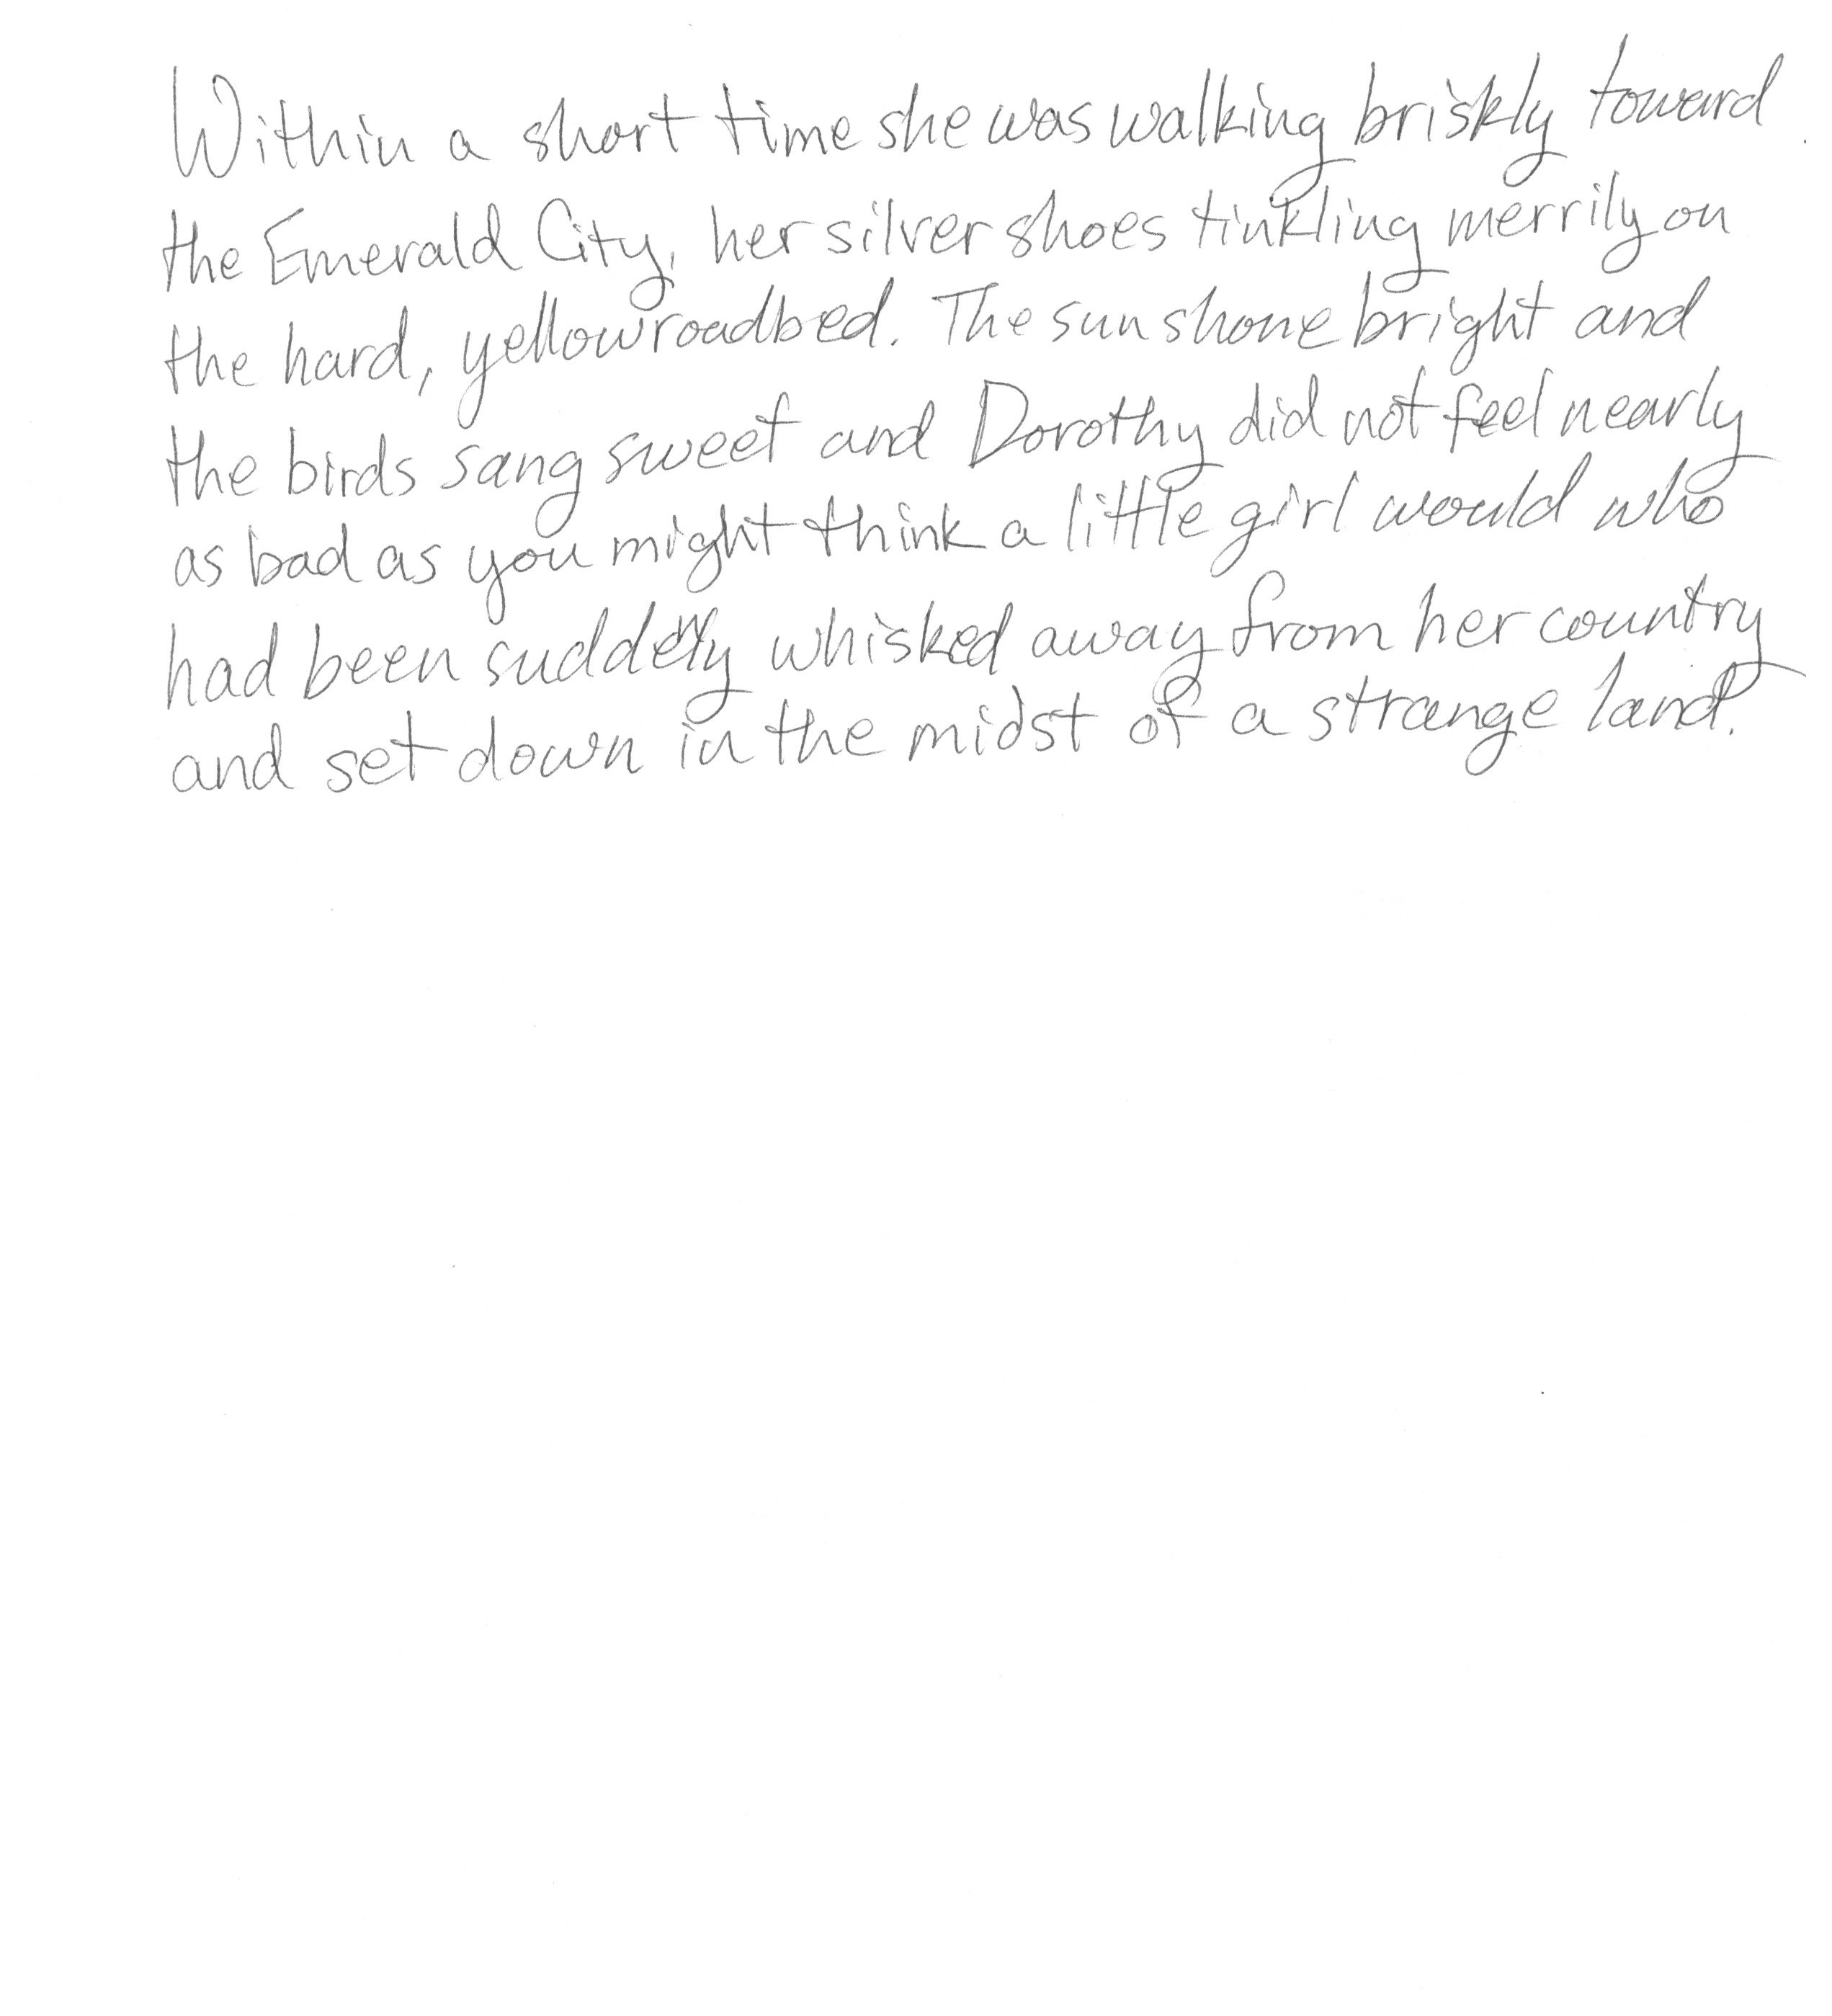 Within a short time she was walking briskly toward
the Emerald City, her silver shoes tinkling merrily on
the hard, yellow roadbed. The sun shone bright and
the birds sang sweet and Dorothy did not feel nearly
as bad as you might think a little girl would who
had been suddenly whisked away from her country
and set down in the midst of a strange land.